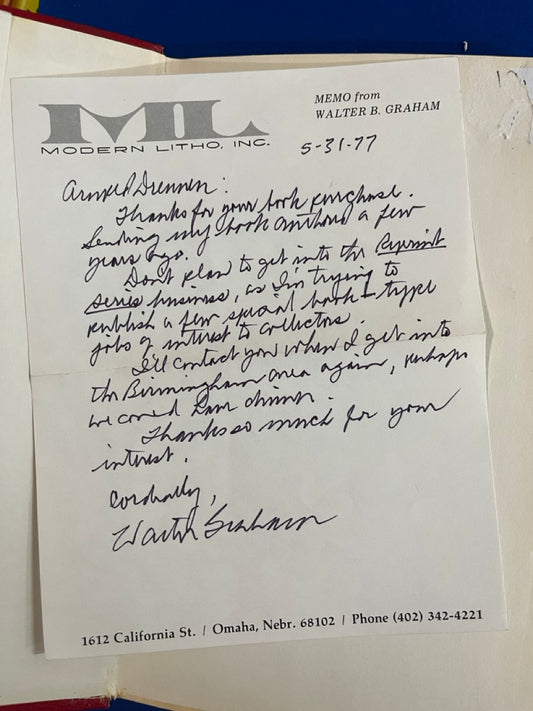 ML
MODERN LITHO, INC.
MEMO from
WALTER B. GRAHAM
5-31-77
Drennen:
Thanks for your book purchase.
Sending my book authored a few
years ago.
Don't plan to get into the Reprint
series business, as I'm trying to
publish a few special book-type
jobs of interest to collectors.
I'll contact you when I get into
the Birmingham area again, perhaps
we could have dinner.
Thanks so much for your
interest.
Cordially,
Walter Graham
1612 California St. / Omaha, Nebr. 68102 / Phone (402) 342-4221